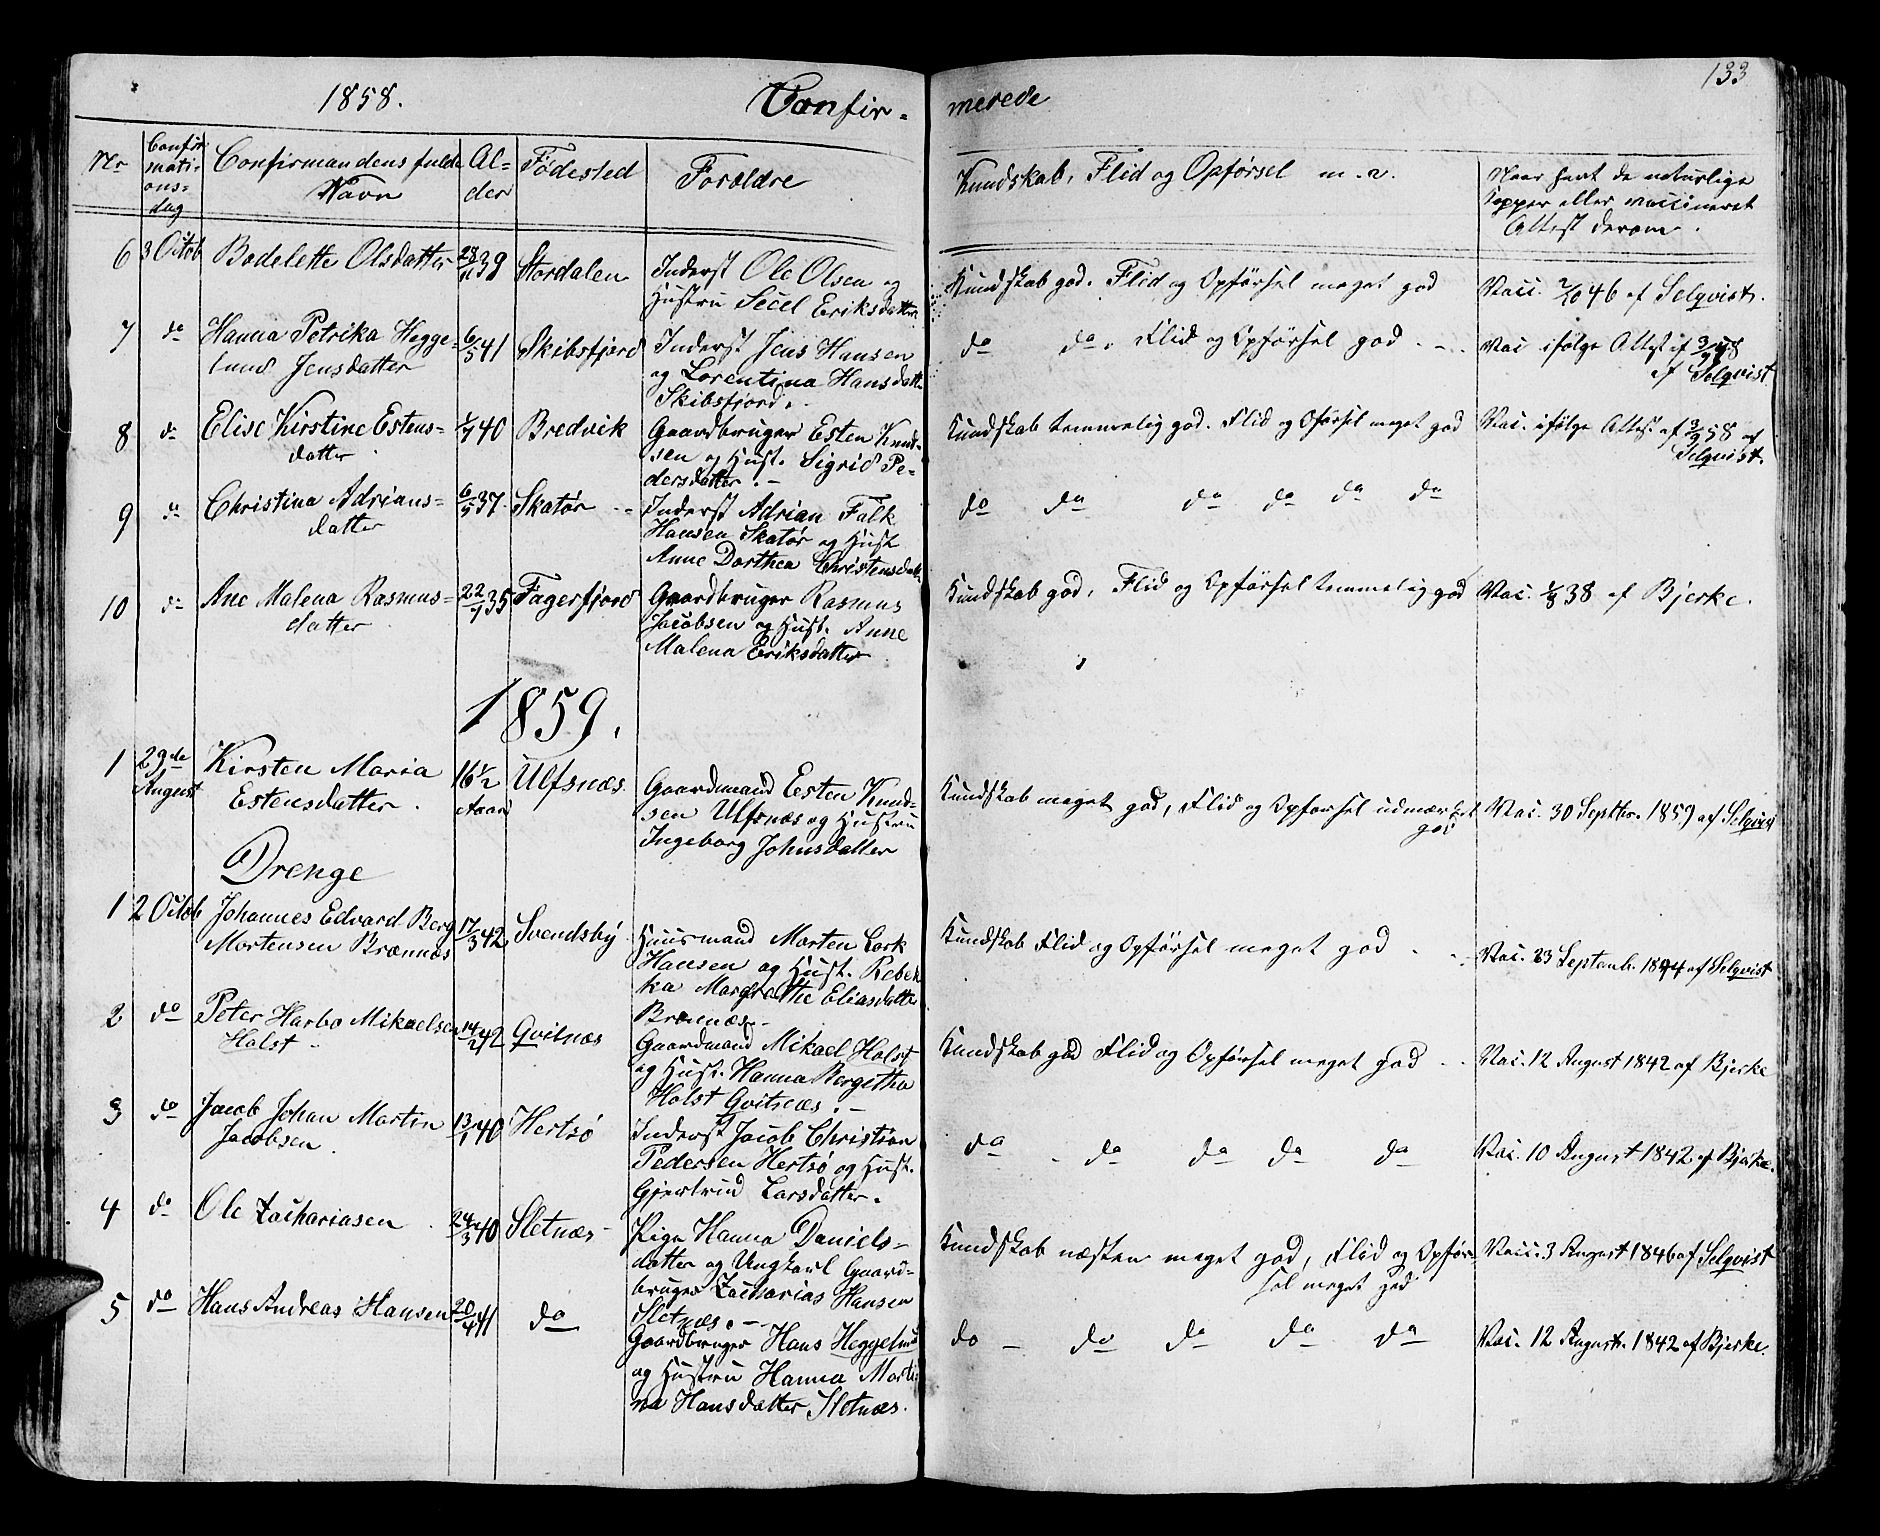 133
1858.
Confir-
merede
Nr
Confir
mati-
ons-
dag
Confirmandens fulde
Navn
Al-
der
Fødested
Forældre
Kundskab, Flid og Opførsel m. v.
Naar havt de naturlige
Kopper eller vaccineret
Attest derom.
6 3 Octob Bodelette Olsdatter 28/11 39 Stordalen
Inderst Ole Olsen og
Hustru Secel Eriksdatter
Kundskab god. Flid og Opførsel meget god
Vacc. 46 af Selqvist.
7 do Hanna Petrika Hegge-
lund Jensdatter
6/5 41 Skibsfjord
Inderst Jens Hansen
og Lorentina Hansdatt.
Skibsfjord.
do do. Flid og Opførsel god . - .
Vac ifølge Attest af 3/9 58
af Selqvist
8 do Elise Kirstine Estens-
datter
1/7 40 Bredvik
Gaardbruger Esten Knud-
sen og Hust. Sigrid Pe-
dersdatter. -
Kundskab temmelig god. Flid og Oførsel meget god
Vac. ifølge Attest af 3/9 58 af
Selqvist.
9 do Christina Adrians-
datter
6/5 37. Skatør --
Inderst Adrian Falk
Hansen Skatør og Hust
Anne Dorthea Christensdatt.
do do do do do do
10 do Ane Malena Rasmus-
datter
22/1 35 Fagerfjord
Gaardbruger Rasmus
Jacobsen og Hust. Anne
Malena Eriksdatter
Kundskab god, Flid og Opførsel temmelig god
Vac. 1/8 38 af Bjerke.
1859.
1 29de
August
Kirsten Maria
Estensdatter.
16 1/2
Aaar
Ulfsnæs.
Gaardmand Esten Knud-
sen Ulfsnæs og Hustru
Ingeborg Johnsdatter
Kundskab meget god, Flid og Opførsel udmærket
god
Vac. 30 Septbr. 1859 af Selqvist
Drenge
1 2 Octob Johannes Edvard Berg
Mortensen Brænnæs
17/3 42 Svendsby
Huusmand Morten Lark
Hansen og Hust. Rebek
ka Margrethe Eliasdatter
Brænnæs-
Kundskab Flid og Opførsel meget god . -
Vac. 23 Septemb. 1844 af Selqvist
2 do Peter Harbo Mikaelsen
Holst
14/2 42 Qvitnæs
Gaardmand Mikael Holst
og Hust. Hanna Bergitha
Holst Qvitnæs. -
Kundskab god Flid og Opførsel meget god . -
Vac. 12 August 1842 af Bjerke
3 do Jacob Johan Martin
Jacobsen.
13/1 40 Hertsø
Inderst Jacob Christian
Pedersen Hertsø og Hust.
Gjertrud Larsdatter.
do - do do do do
Vac. 10 August 1842 af Bjerke.
4 do Ole Zachariasen
24/3 40 Sletnæs-
Pige Hanna Daniels-
datter og Ungkarl Gaard-
bruger Zacharias Hansen
Sletnæs. -
Kundskab næsten meget god, Flid og Opfør-
sel meget god
Vacc. 3 August 1846 af Selqvist
5 do Hans Andreas Hansen 20/4 41 do
Gaardbruger Hans Heggelund
og Hustru Hanna Marti-
na Hansdatter Sletnæs.
do - do do do do
Vac. 12 August. 1842 af Bjerke.